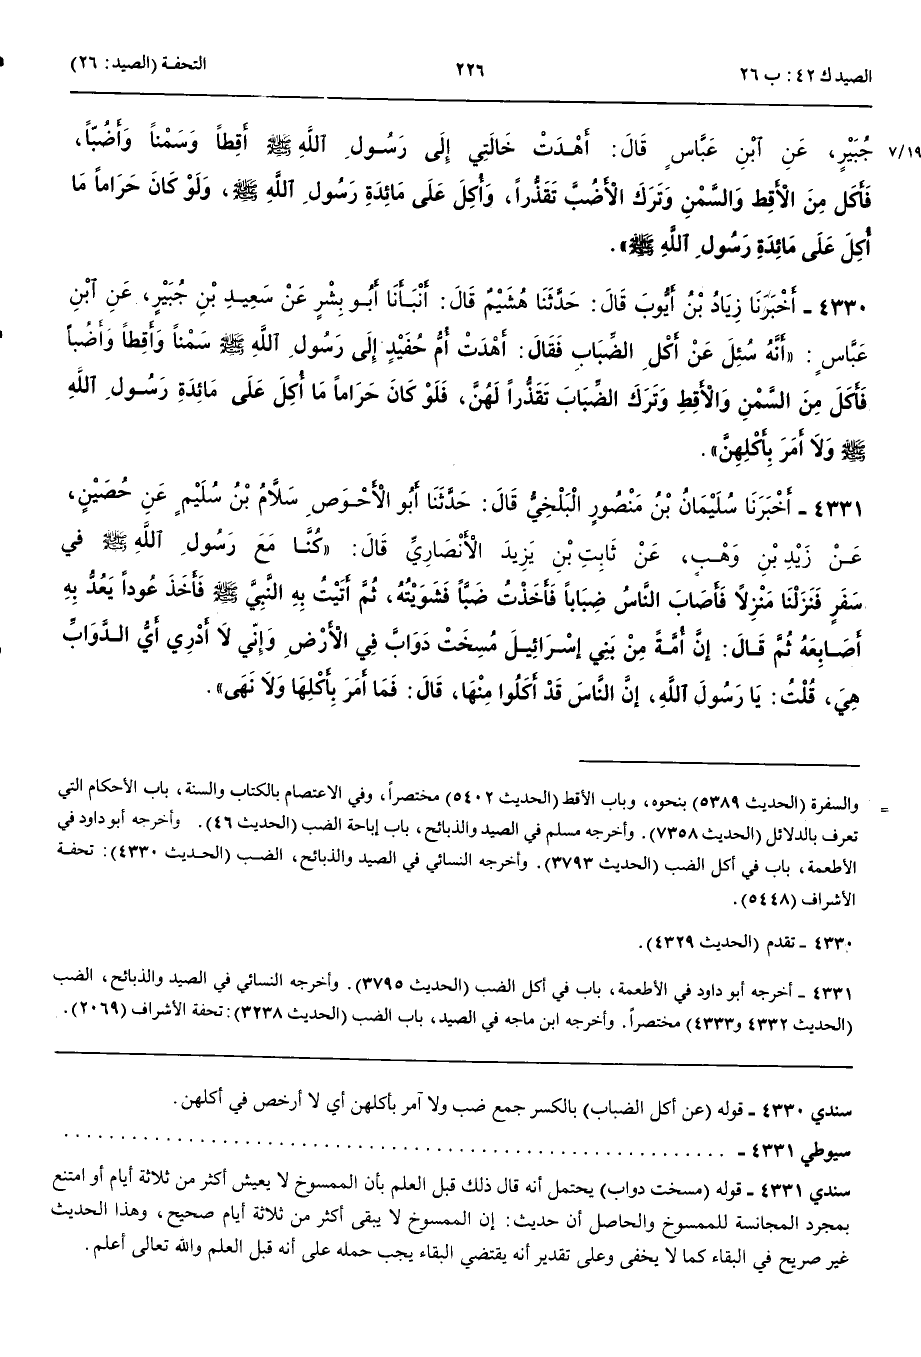 الصيد ك ٤٢: ب ٢٦
٢٢٦
التحفة (الصيد: ٢٦)
٧/١٩
جُبَيْرٍ، عَنِ ٱبْنِ عَبَّاسٍ قَالَ: أَهْدَتْ خَالَتِي إِلَى رَسُولِ ٱللَّهِ ﷺ أَقِطاً وَسَمْناً وَأَضُبّاً،
فَأَكَلَ مِنَ الْأَقِطِ وَالسَّمْنِ وَتَرَكَ الْأَضُبَّ تَقَذُّراً، وَأُكِلَ عَلَى مَائِدَةِ رَسُولِ ٱللَّهِ ﷺ، وَلَوْ كَانَ حَرَاماً مَا
أُكِلَ عَلَى مَائِدَةِ رَسُولِ ٱللَّهِ ﷺ».
٤٣٣٠ - أَخْبَرَنَا زِيَادُ بْنُ أَيُّوبَ قَالَ: حَدَّثَنَا هُشَيْمٌ قَالَ: أَنْبَأَنَا أَبُو بِشْرٍ عَنْ سَعِيدِ بْنِ جُبَيْرٍ، عَنِ ٱبْنِ
عَبَّاسٍ: «أَنَّهُ سُئِلَ عَنْ أَكْلِ الضِّبَابِ فَقَالَ: أَهْدَتْ أُمُّ حُفَيْدٍ إِلَى رَسُولِ ٱللَّهِ ﷺ سَمْناً وَأَقِطاً وَأَضُبّاً
فَأَكَلَ مِنَ السَّمْنِ وَالْأَقِطِ وَتَرَكَ الضِّبَابَ تَقَذُّراً لَهُنَّ، فَلَوْ كَانَ حَرَاماً مَا أُكِلَ عَلَى مَائِدَةِ رَسُولِ ٱللَّهِ
ﷺ وَلَا أَمَرَ بِأَكْلِهِنَّ».
٤٣٣١ - أَخْبَرَنَا سُلَيْمَانُ بْنُ مَنْصُورٍ الْبَلْخِيُّ قَالَ: حَدَّثَنَا أَبُو الْأَحْوَصِ سَلَّامُ بْنُ سُلَيْمٍ عَنِ حُصَيْنٍ،
عَنْ زَيْدِ بْنِ وَهْبٍ، عَنْ ثَابِتِ بْنِ يَزِيدَ الْأَنْصَارِيِّ قَالَ: «كُنَّا مَعَ رَسُولِ ٱللَّهِ ﷺ فِي
سَفَرٍ فَنَزَلْنَا مَنْزِلاً فَأَصَابَ النَّاسُ ضِبَاباً فَأَخَذْتُ ضَبّاً فَشَوَيْتُهُ، ثُمَّ أَتَيْتُ بِهِ النَّبِيَّ ﷺ فَأَخَذَ عُوداً يَعُدُّ بِهِ
أَصَابِعَهُ ثُمَّ قَالَ: إِنَّ أُمَّةً مِنْ بَنِي إِسْرَائِيلَ مُسِخَتْ دَوَابَّ فِي الْأَرْضِ وَإِنِّي لَا أَدْرِي أَيُّ الدَّوَابِّ
هِيَ، قُلْتُ: يَا رَسُولَ ٱللَّهِ، إِنَّ النَّاسَ قَدْ أَكَلُوا مِنْهَا، قَالَ: فَمَا أَمَرَ بِأَكْلِهَا وَلَا نَهَى».
= والسفرة (الحديث ٥٣٨٩) بنحوه، وباب الأقط (الحديث ٥٤٠٢) مختصراً، وفي الاعتصام بالكتاب والسنة، باب الأحكام التي
تعرف بالدلائل (الحديث ٧٣٥٨). وأخرجه مسلم في الصيد والذبائح، باب إباحة الضب (الحديث ٤٦). وأخرجه أبو داود في
الأطعمة، باب في أكل الضب (الحديث ٣٧٩٣). وأخرجه النسائي في الصيد والذبائح، الضب (الحديث ٤٣٣٠): تحفة
الأشراف (٥٤٤٨).
٤٣٣٠ - تقدم (الحديث ٤٣٢٩).
٤٣٣١ - أخرجه أبو داود في الأطعمة، باب في أكل الضب (الحديث ٣٧٩٥). وأخرجه النسائي في الصيد والذبائح، الضب
(الحديث ٤٣٣٢ و٤٣٣٣) مختصراً. وأخرجه ابن ماجه في الصيد، باب الضب (الحديث ٣٢٣٨): تحفة الأشراف (٢٠٦٩).
سندي ٤٣٣٠ - قوله (عن أكل الضباب) بالكسر جمع ضب ولا آمر بأكلهن أي لا أرخص في أكلهن.
سيوطي ٤٣٣١ - . . . . . . . . . . . . . . . . . . . . . . . . . . . . . .
سندي ٤٣٣١ - قوله (مسخت دواب) يحتمل أنه قال ذلك قبل العلم بأن الممسوخ لا يعيش أكثر من ثلاثة أيام أو امتنع
بمجرد المجانسة للممسوخ والحاصل أن حديث: إن الممسوخ لا يبقى أكثر من ثلاثة أيام صحيح، وهذا الحديث
غير صريح في البقاء كما لا يخفى وعلى تقدير أنه يقتضي البقاء يجب حمله على أنه قبل العلم والله تعالى أعلم.